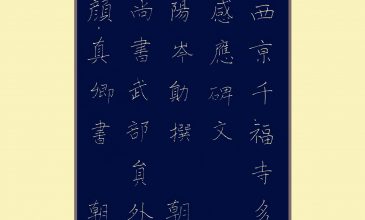 西京千福寺多
感應碑文
陽岑勛撰 朝
尚書武部員外
顏真卿書 朝